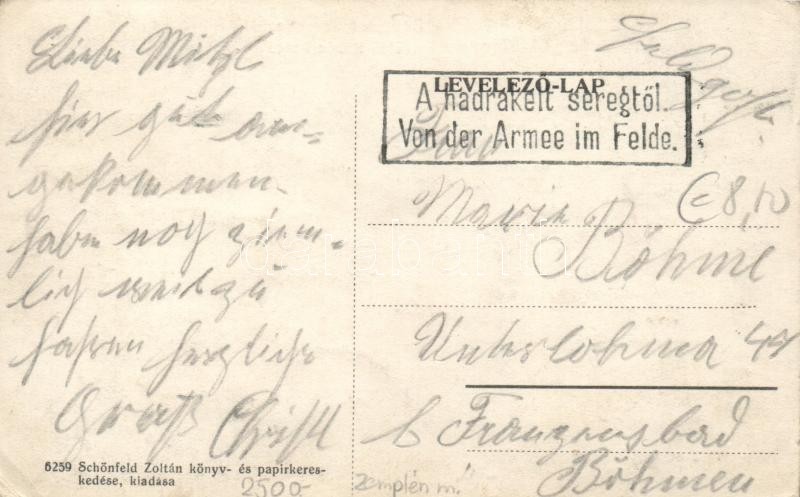 Liebe Mitzl
hier gut an-
gekommen.
haben noch ziem-
lich weit zu
fahren herzliche
Gruß Christl
Feldpost.
LEVELEZŐ-LAP
A hadrakelt seregtől.
Von der Armee im Felde.
Frau
Maria
Böhme
Unterlohma 47
b Franzensbad
Böhmen
8,10
6259 Schönfeld Zoltán könyv- és papirkeres-
kedése, kiadása
2500-
Zemplén m.
darabanth